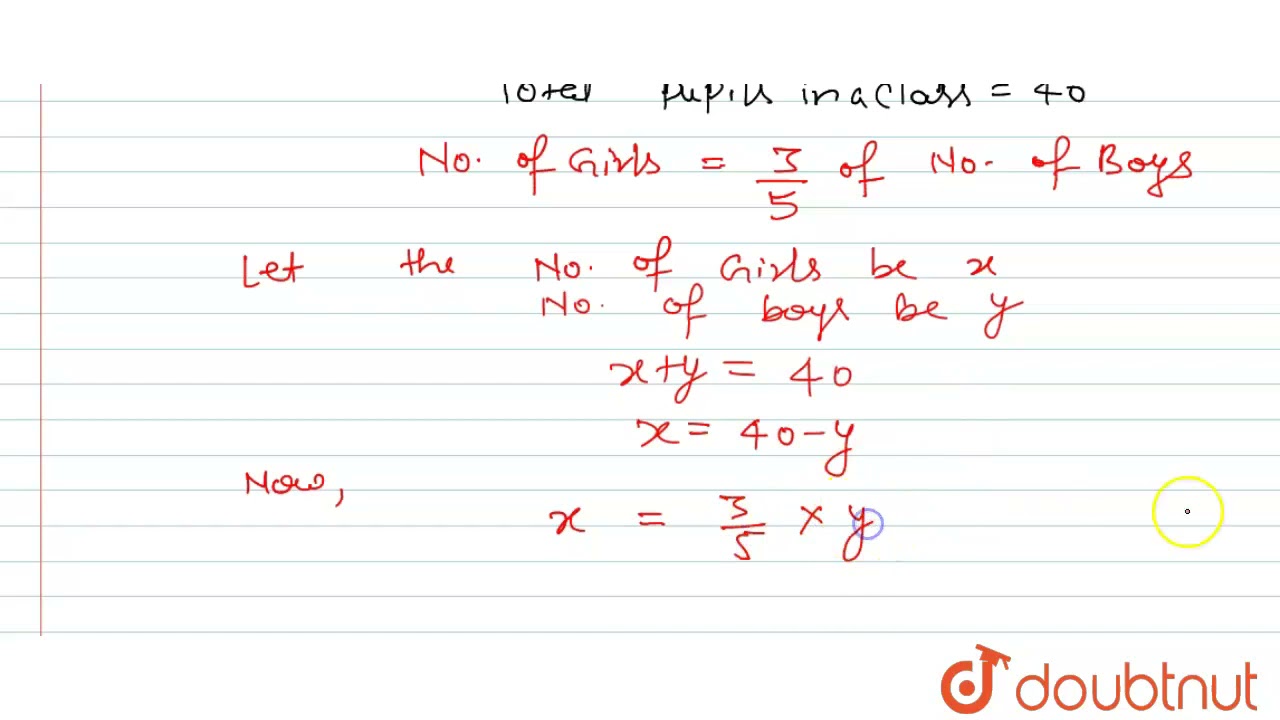 Total pupils in a class = 40
No. of Girls = 3/5 of No. of Boys
Let the No. of Girls be x
No. of boys be y
x+y = 40
x = 40-y
Now,
x = 3/5 × y
doubtnut